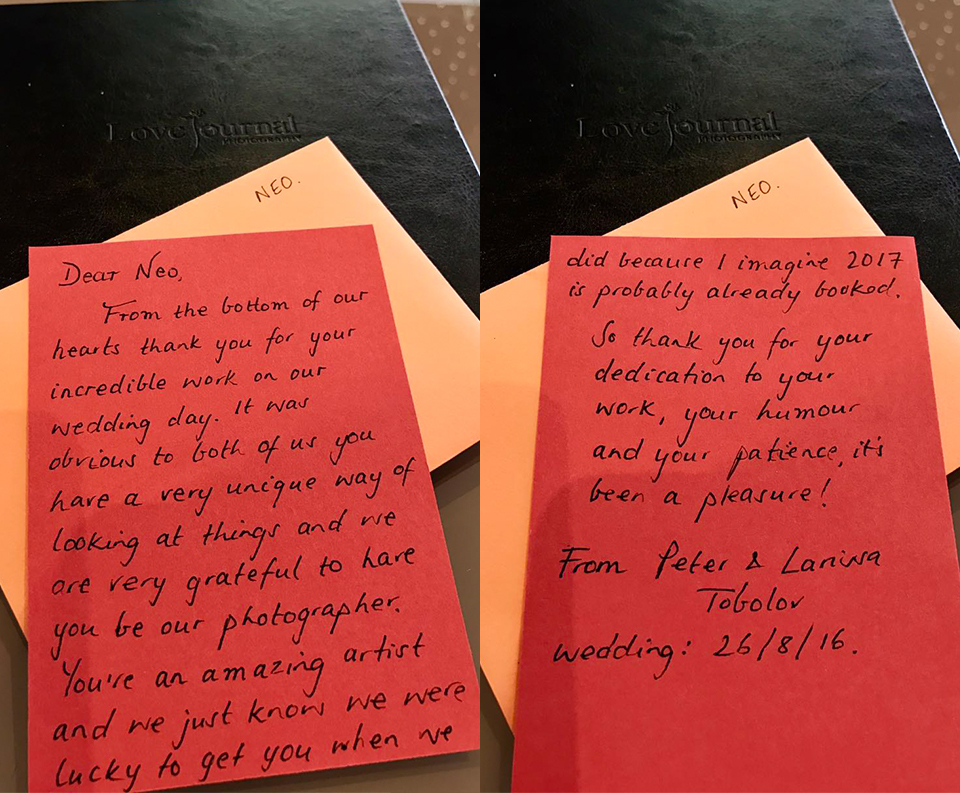 Love Journal
PHOTOGRAPHY
NEO.
Dear Neo,
From the bottom of our
hearts thank you for your
incredible work on our
wedding day. It was
obvious to both of us you
have a very unique way of
looking at things and we
are very grateful to have
you be our photographer.
You're an amazing artist
and we just know we were
lucky to get you when we
Love Journal
PHOTOGRAPHY
NEO.
did because I imagine 2017
is probably already booked.
So thank you for your
dedication to your
work, your humour
and your patience, it's
been a pleasure!
From Peter & Larissa
Tobolov
wedding: 26/8/16.